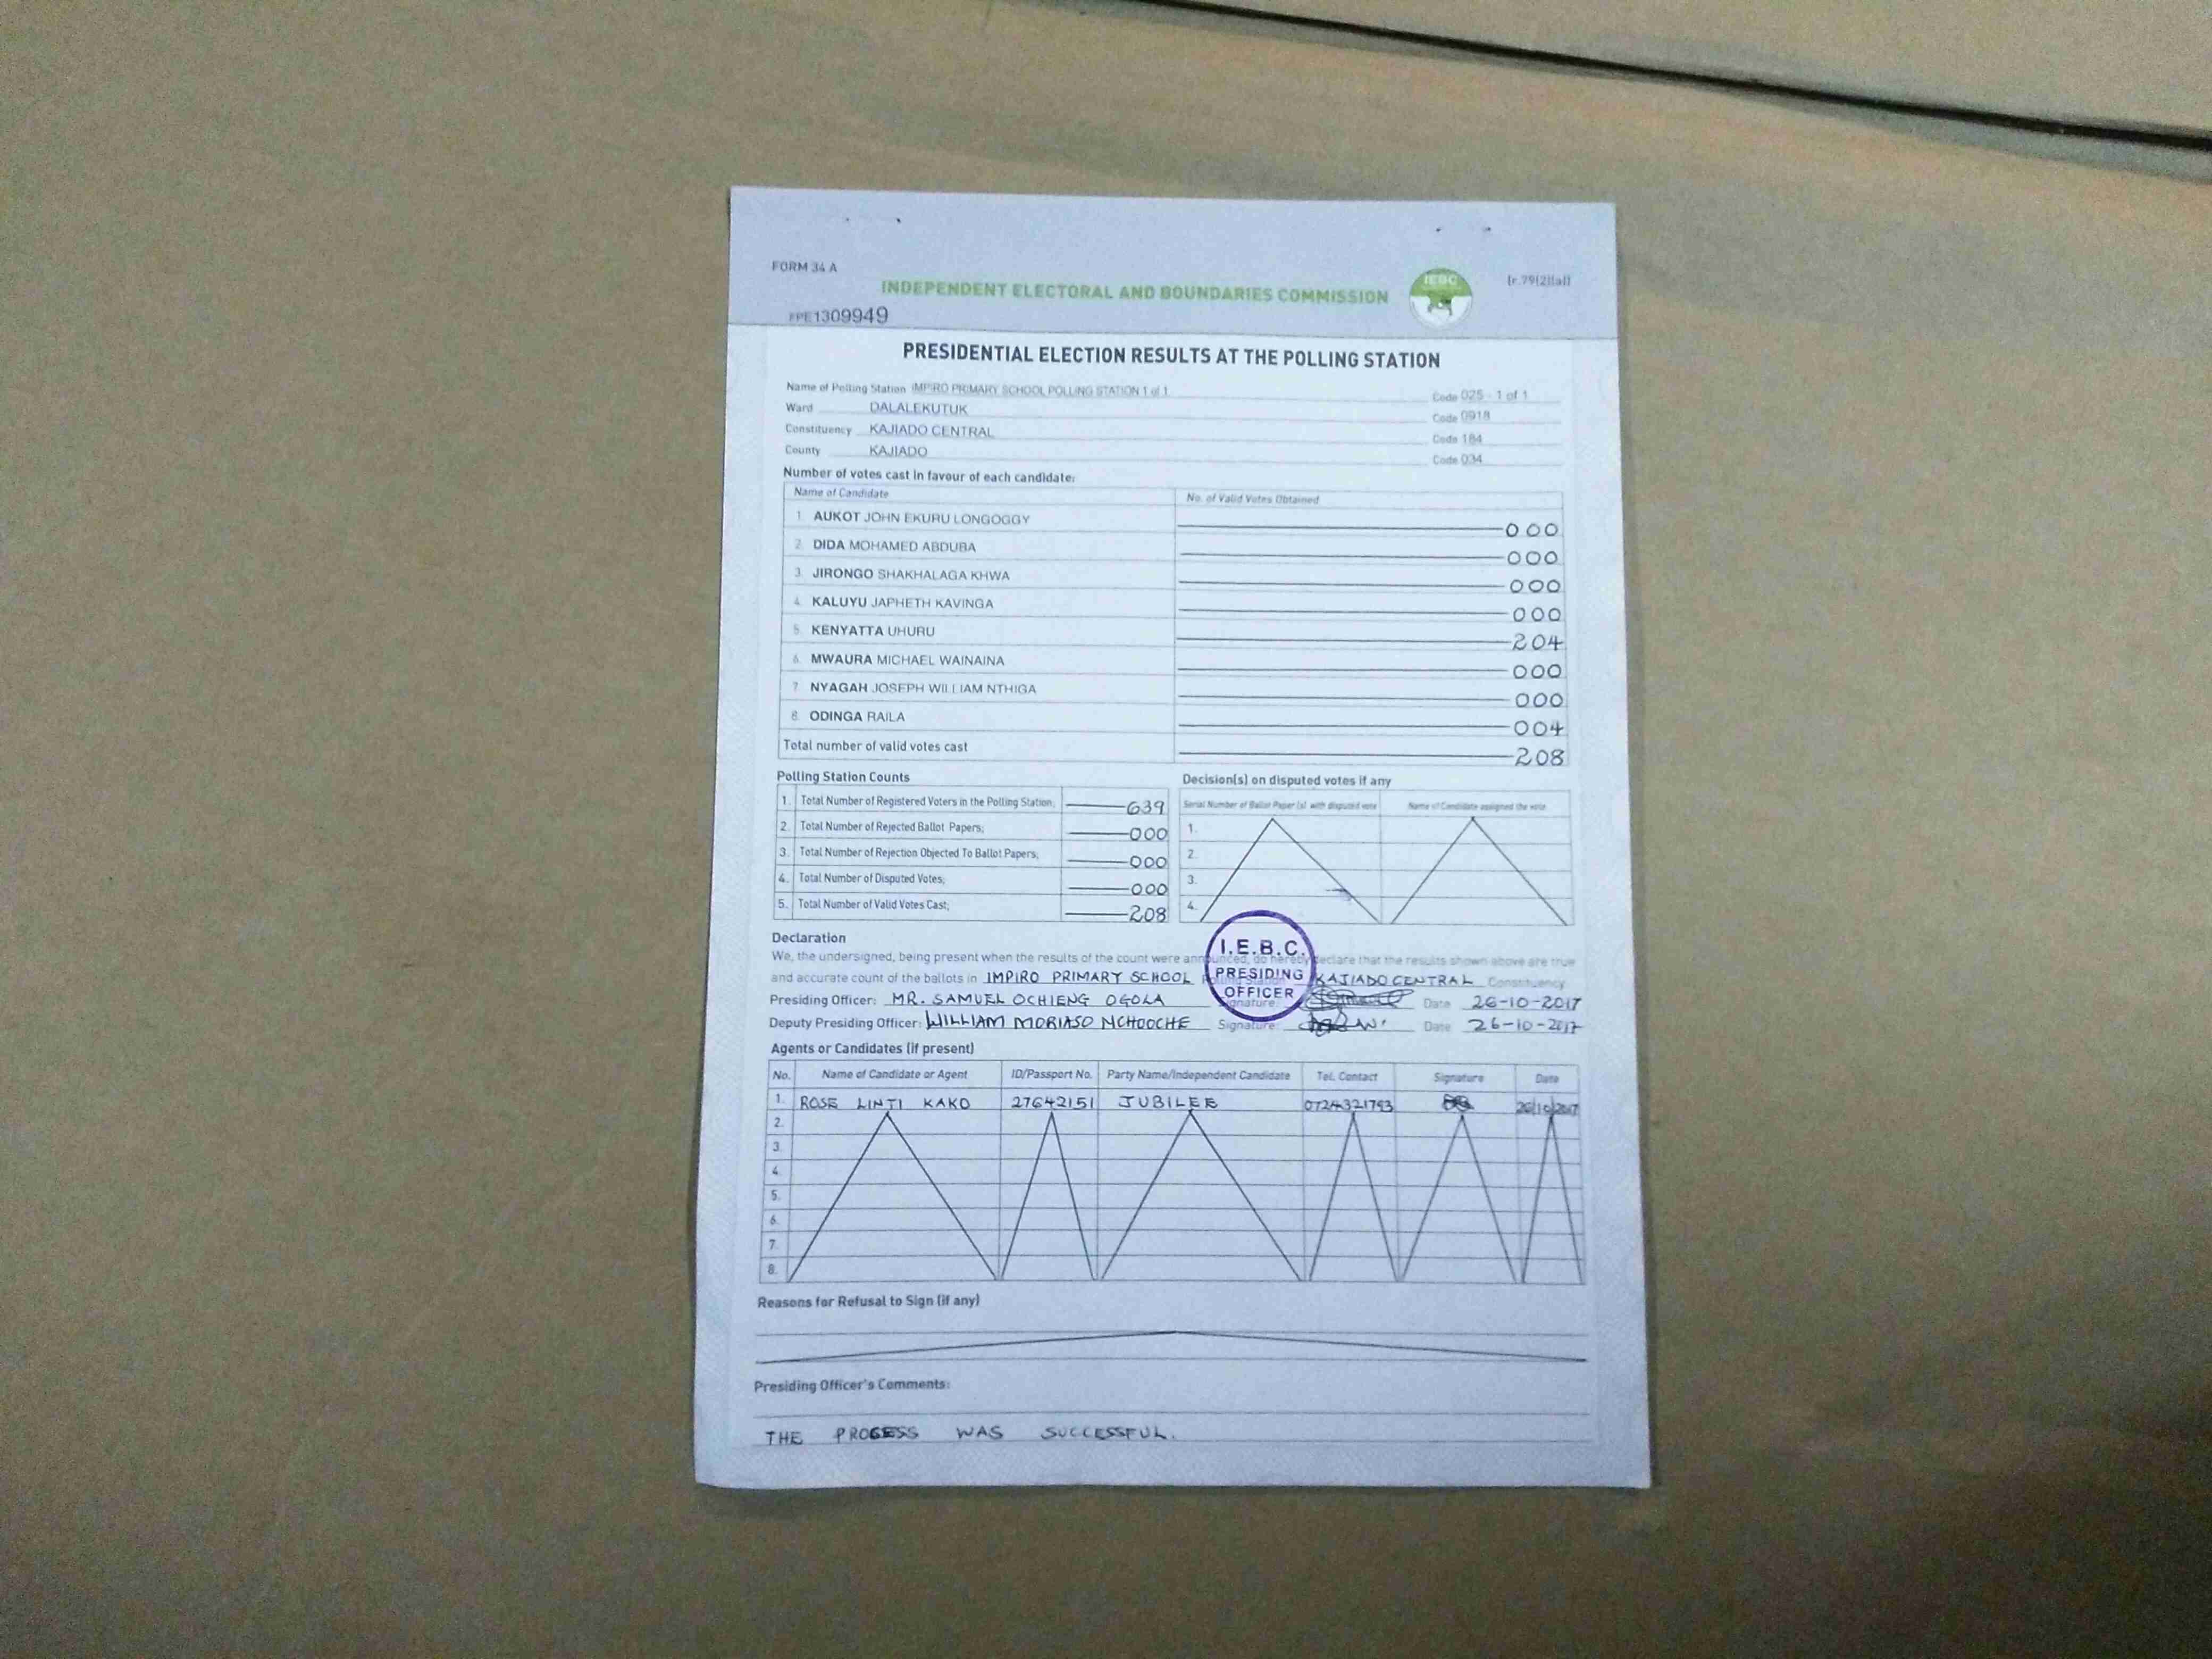 FORM 34 A
INDEPENDENT ELECTORAL AND BOUNDARIES COMMISSION
IEBC
(r.79(2)(a))
FPE1309949
PRESIDENTIAL ELECTION RESULTS AT THE POLLING STATION
Name of Polling Station IMPIRO PRIMARY SCHOOL POLLING STATION 1 of 1 Code 025 - 1 of 1
Ward DALALEKUTUK Code 0918
Constituency KAJIADO CENTRAL Code 184
County KAJIADO Code 034
Number of votes cast in favour of each candidate:
Name of Candidate No. of Valid Votes Obtained
1. AUKOT JOHN EKURU LONGOGGY 000
2. DIDA MOHAMED ABDUBA 000
3. JIRONGO SHAKHALAGA KHWA 000
4. KALUYU JAPHETH KAVINGA 000
5. KENYATTA UHURU 204
6. MWAURA MICHAEL WAINAINA 000
7. NYAGAH JOSEPH WILLIAM NTHIGA 000
8. ODINGA RAILA 004
Total number of valid votes cast 208
Polling Station Counts
1. Total Number of Registered Voters in the Polling Station; 639
2. Total Number of Rejected Ballot Papers; 000
3. Total Number of Rejection Objected To Ballot Papers; 000
4. Total Number of Disputed Votes; 000
5. Total Number of Valid Votes Cast; 208
Decision(s) on disputed votes if any
Serial Number of Ballot Paper (s) with disputed vote Name of Candidate assigned the vote
1.
2.
3.
4.
Declaration
We, the undersigned, being present when the results of the count were announced, do hereby declare that the results shown above are true
and accurate count of the ballots in IMPIRO PRIMARY SCHOOL Polling Station KAJIADO CENTRAL Constituency
I.E.B.C.
PRESIDING
OFFICER
Presiding Officer: MR. SAMUEL OCHIENG OGOLA Signature: Date 26-10-2017
Deputy Presiding Officer: WILLIAM MORIASO NCHOOCHE Signature: Date 26-10-2017
Agents or Candidates (if present)
No. Name of Candidate or Agent ID/Passport No. Party Name/Independent Candidate Tel. Contact Signature Date
1. ROSE LINTI KAKO 27642151 JUBILEE 0724321793 26/10/2017
2.
3.
4.
5.
6.
7.
8.
Reasons for Refusal to Sign (if any)
Presiding Officer's Comments:
THE PROCESS WAS SUCCESSFUL.